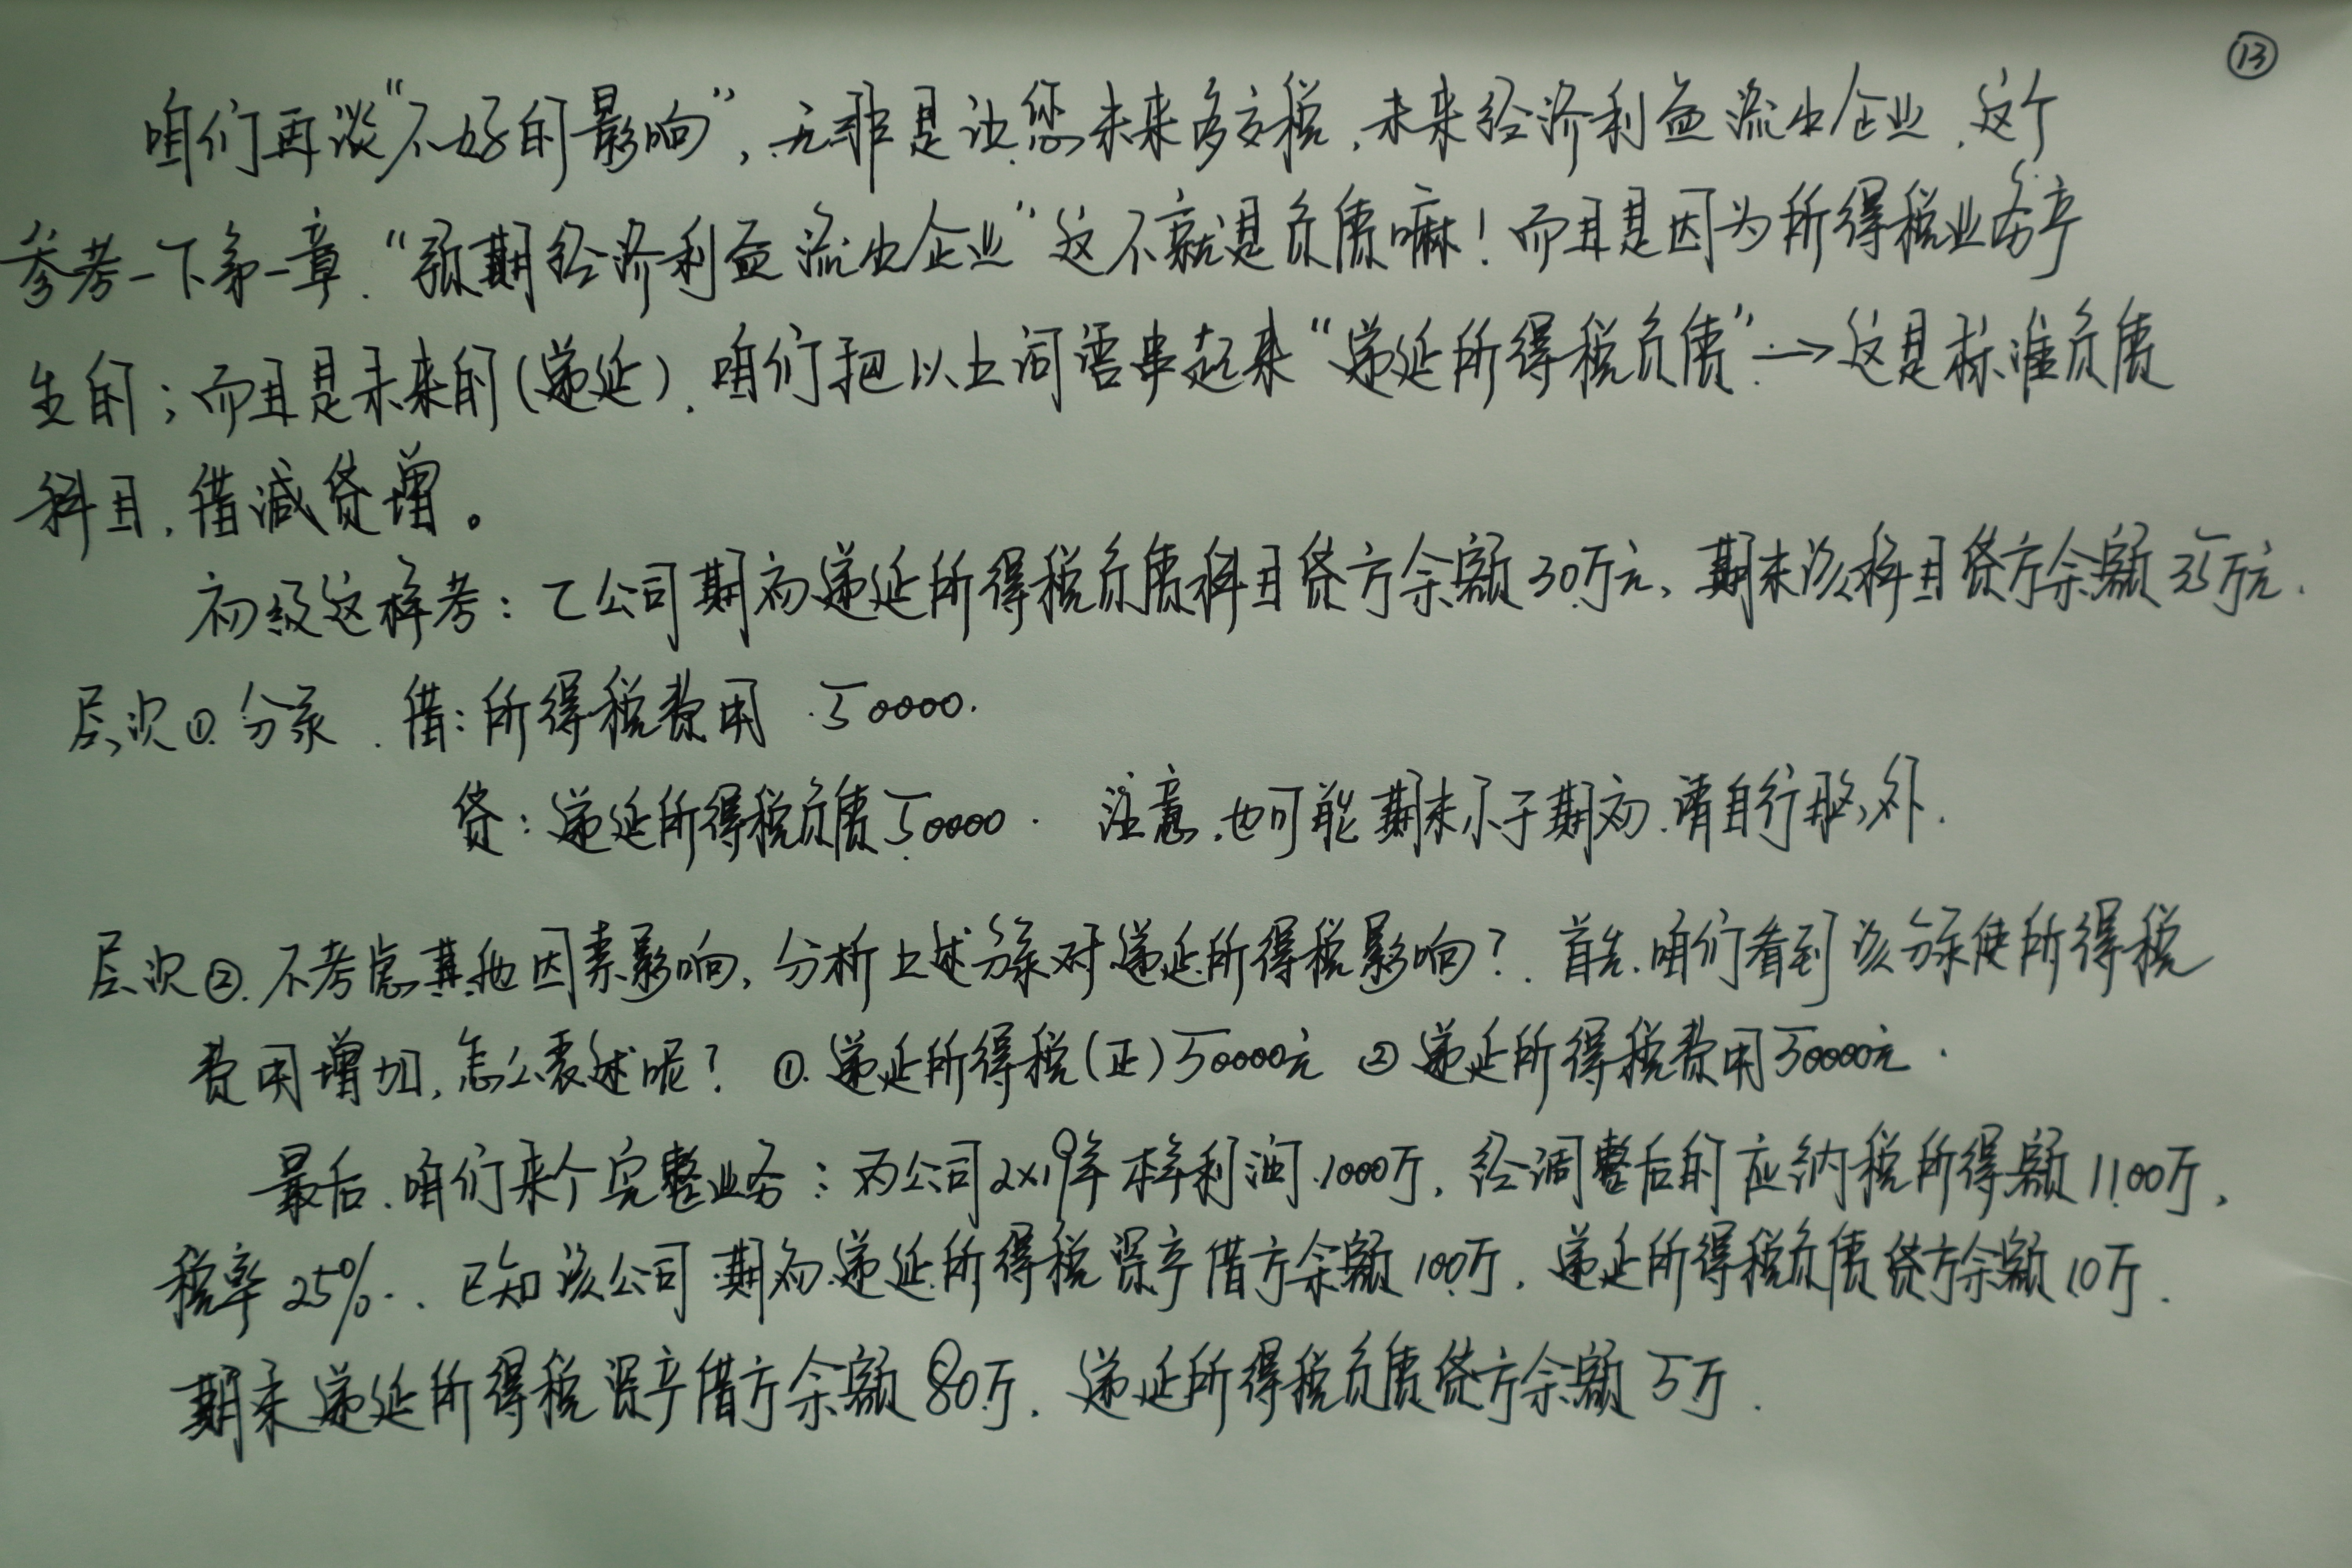 ⑬
咱们再谈“不好的影响”，无非是让您未来多交税，未来经济利益流出企业，这个
参考一下第一章，“预期经济利益流出企业”这不就是负债嘛！而且是因为所得税业务产
生的；而且是未来的(递延)，咱们把以上词语串起来“递延所得税负债”→这是标准负债
科目，借减贷增。
初级这样考：乙公司期初递延所得税负债科目贷方余额30万元，期末该科目贷方余额35万元．
层次①．分录．借：所得税费用 50000．
贷：递延所得税负债50000． 注意，也可能期末小于期初，请自行脑补．
层次②．不考虑其他因素影响，分析上述分录对递延所得税影响？．首先，咱们看到该分录使所得税
费用增加，怎么表述呢？ ①．递延所得税(正)50000元 ②递延所得税费用50000元．
最后，咱们来个完整业务：丙公司2×19年本年利润1000万，经调整后的应纳税所得额1100万，
税率25%．．已知该公司期初递延所得税资产借方余额100万，递延所得税负债贷方余额10万．
期末递延所得税资产借方余额80万，递延所得税负债贷方余额5万．